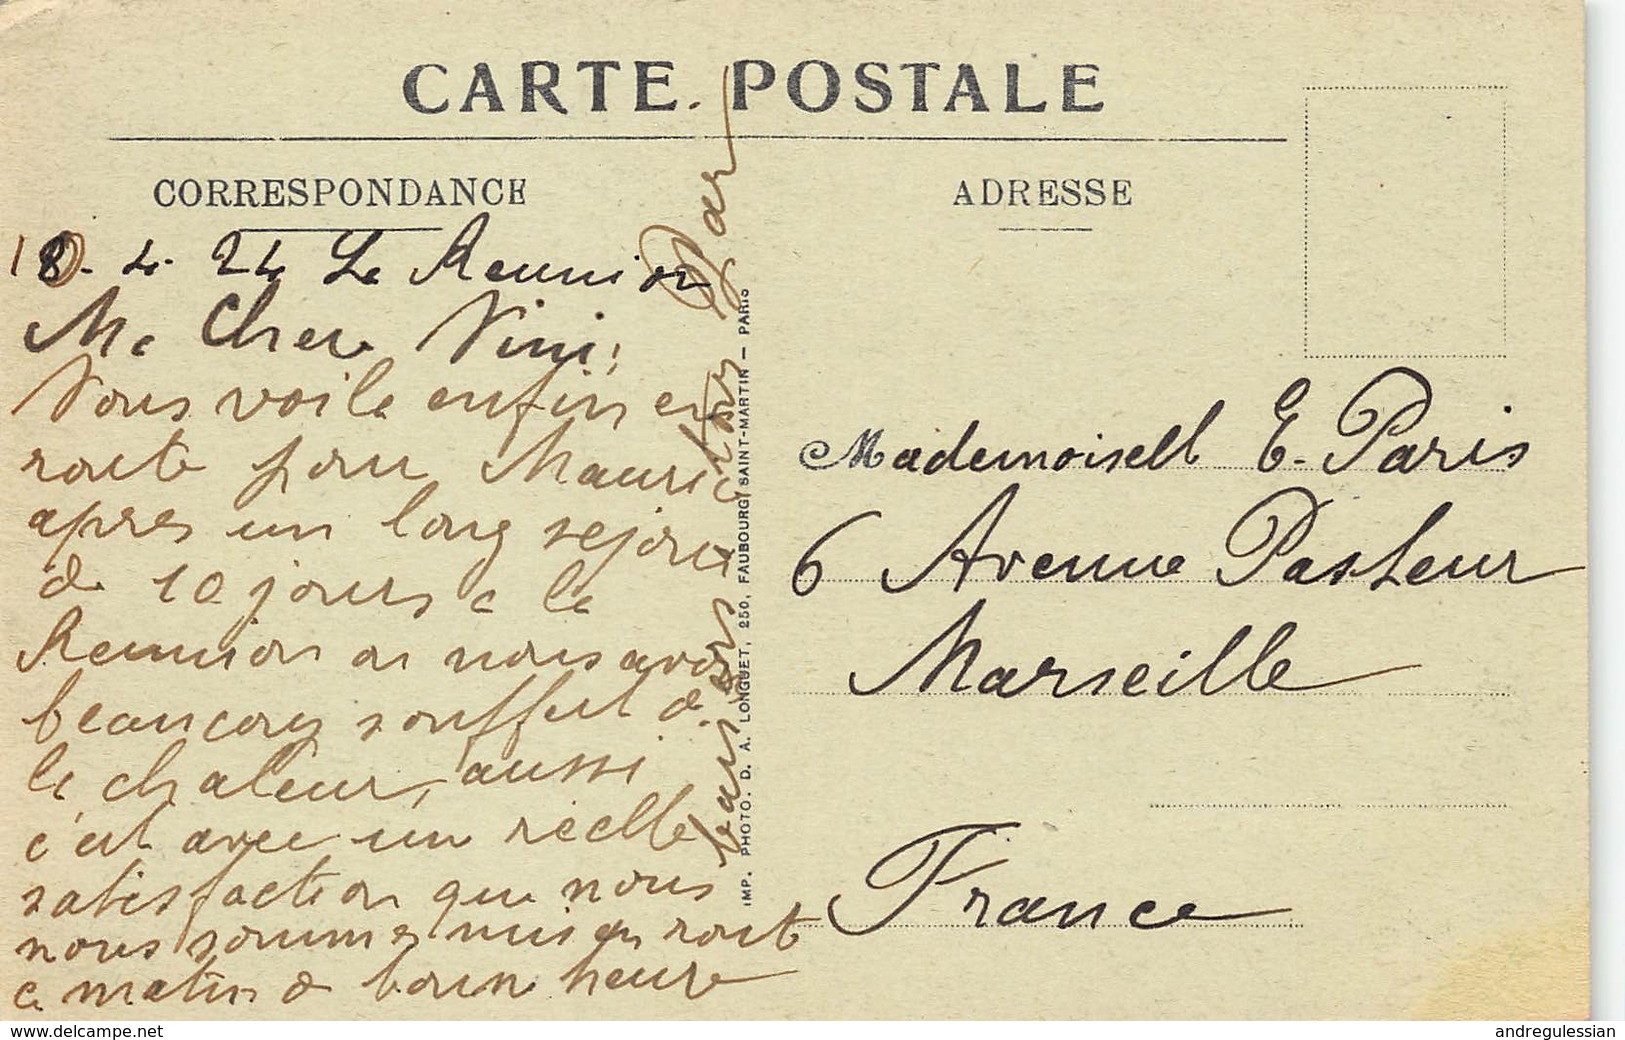 CARTE POSTALE
CORRESPONDANCE
ADRESSE
18-4-24 La Reunion
Ma Chere Nini,
Nous voila enfin en
route pour Maurice
apres un long sejour
de 10 jours a la
Reunion on nous avons
beaucoup souffert de
la chaleur, aussi
c'est avec un réelle
satisfaction que nous
nous sommes mis en route
ce matin de bonne heure
baisers
IMP. PHOTO. D. A. LONGUET, 250, FAUBOURG SAINT-MARTIN - PARIS
Mademoisell E. Paris
6 Avenue Pasteur
Marseille
France
www.delcampe.net
andregulessian